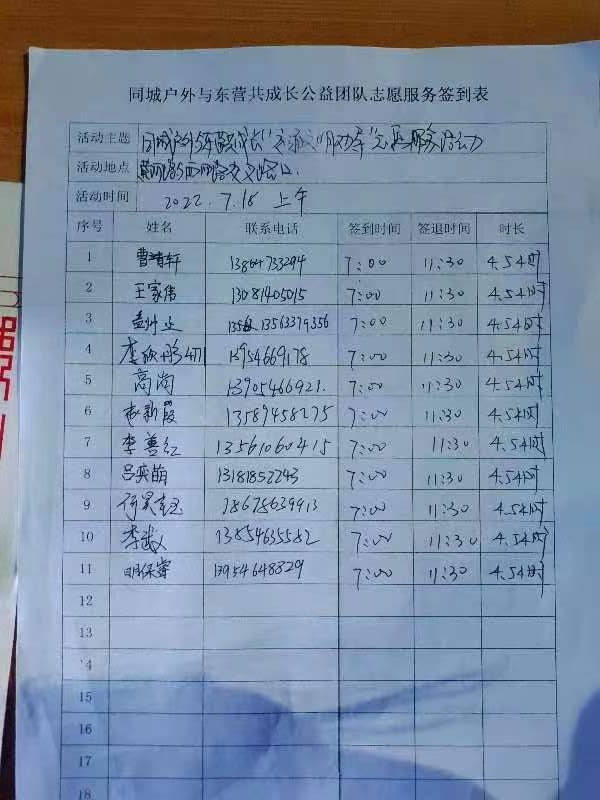 同城户外与东营共成长公益团队志愿服务签到表
活动主题 同城户外与东营共成长"交通 助功率"志愿服务活动
活动地点 西 路交叉路口
活动时间 2022.7.18 上午
序号 姓名 联系电话 签到时间 签退时间 时长
1 曹 轩 13864733294 7:00 11:30 4.5小时
2 王家伟 13081405015 7:00 11:30 4.5小时
3 13563379356 7:00 11:30 4.5小时
4 李欣彤 13954669178 7:00 11:30 4.5小时
5 高尚 13905466921 7:00 11:30 4.5小时
6 新霞 13589458275 7:00 11:30 4.5小时
7 李善红 13561060415 7:00 11:30 4.5小时
8 吕英萌 13181852243 7:00 11:30 4.5小时
9 18678639913 7:00 11:30 4.5小时
10 李 13854635582 7:00 11:30 4.5小时
11 明保 13954648829 7:00 11:30 4.5小时
12
13
14
15
16
17
18